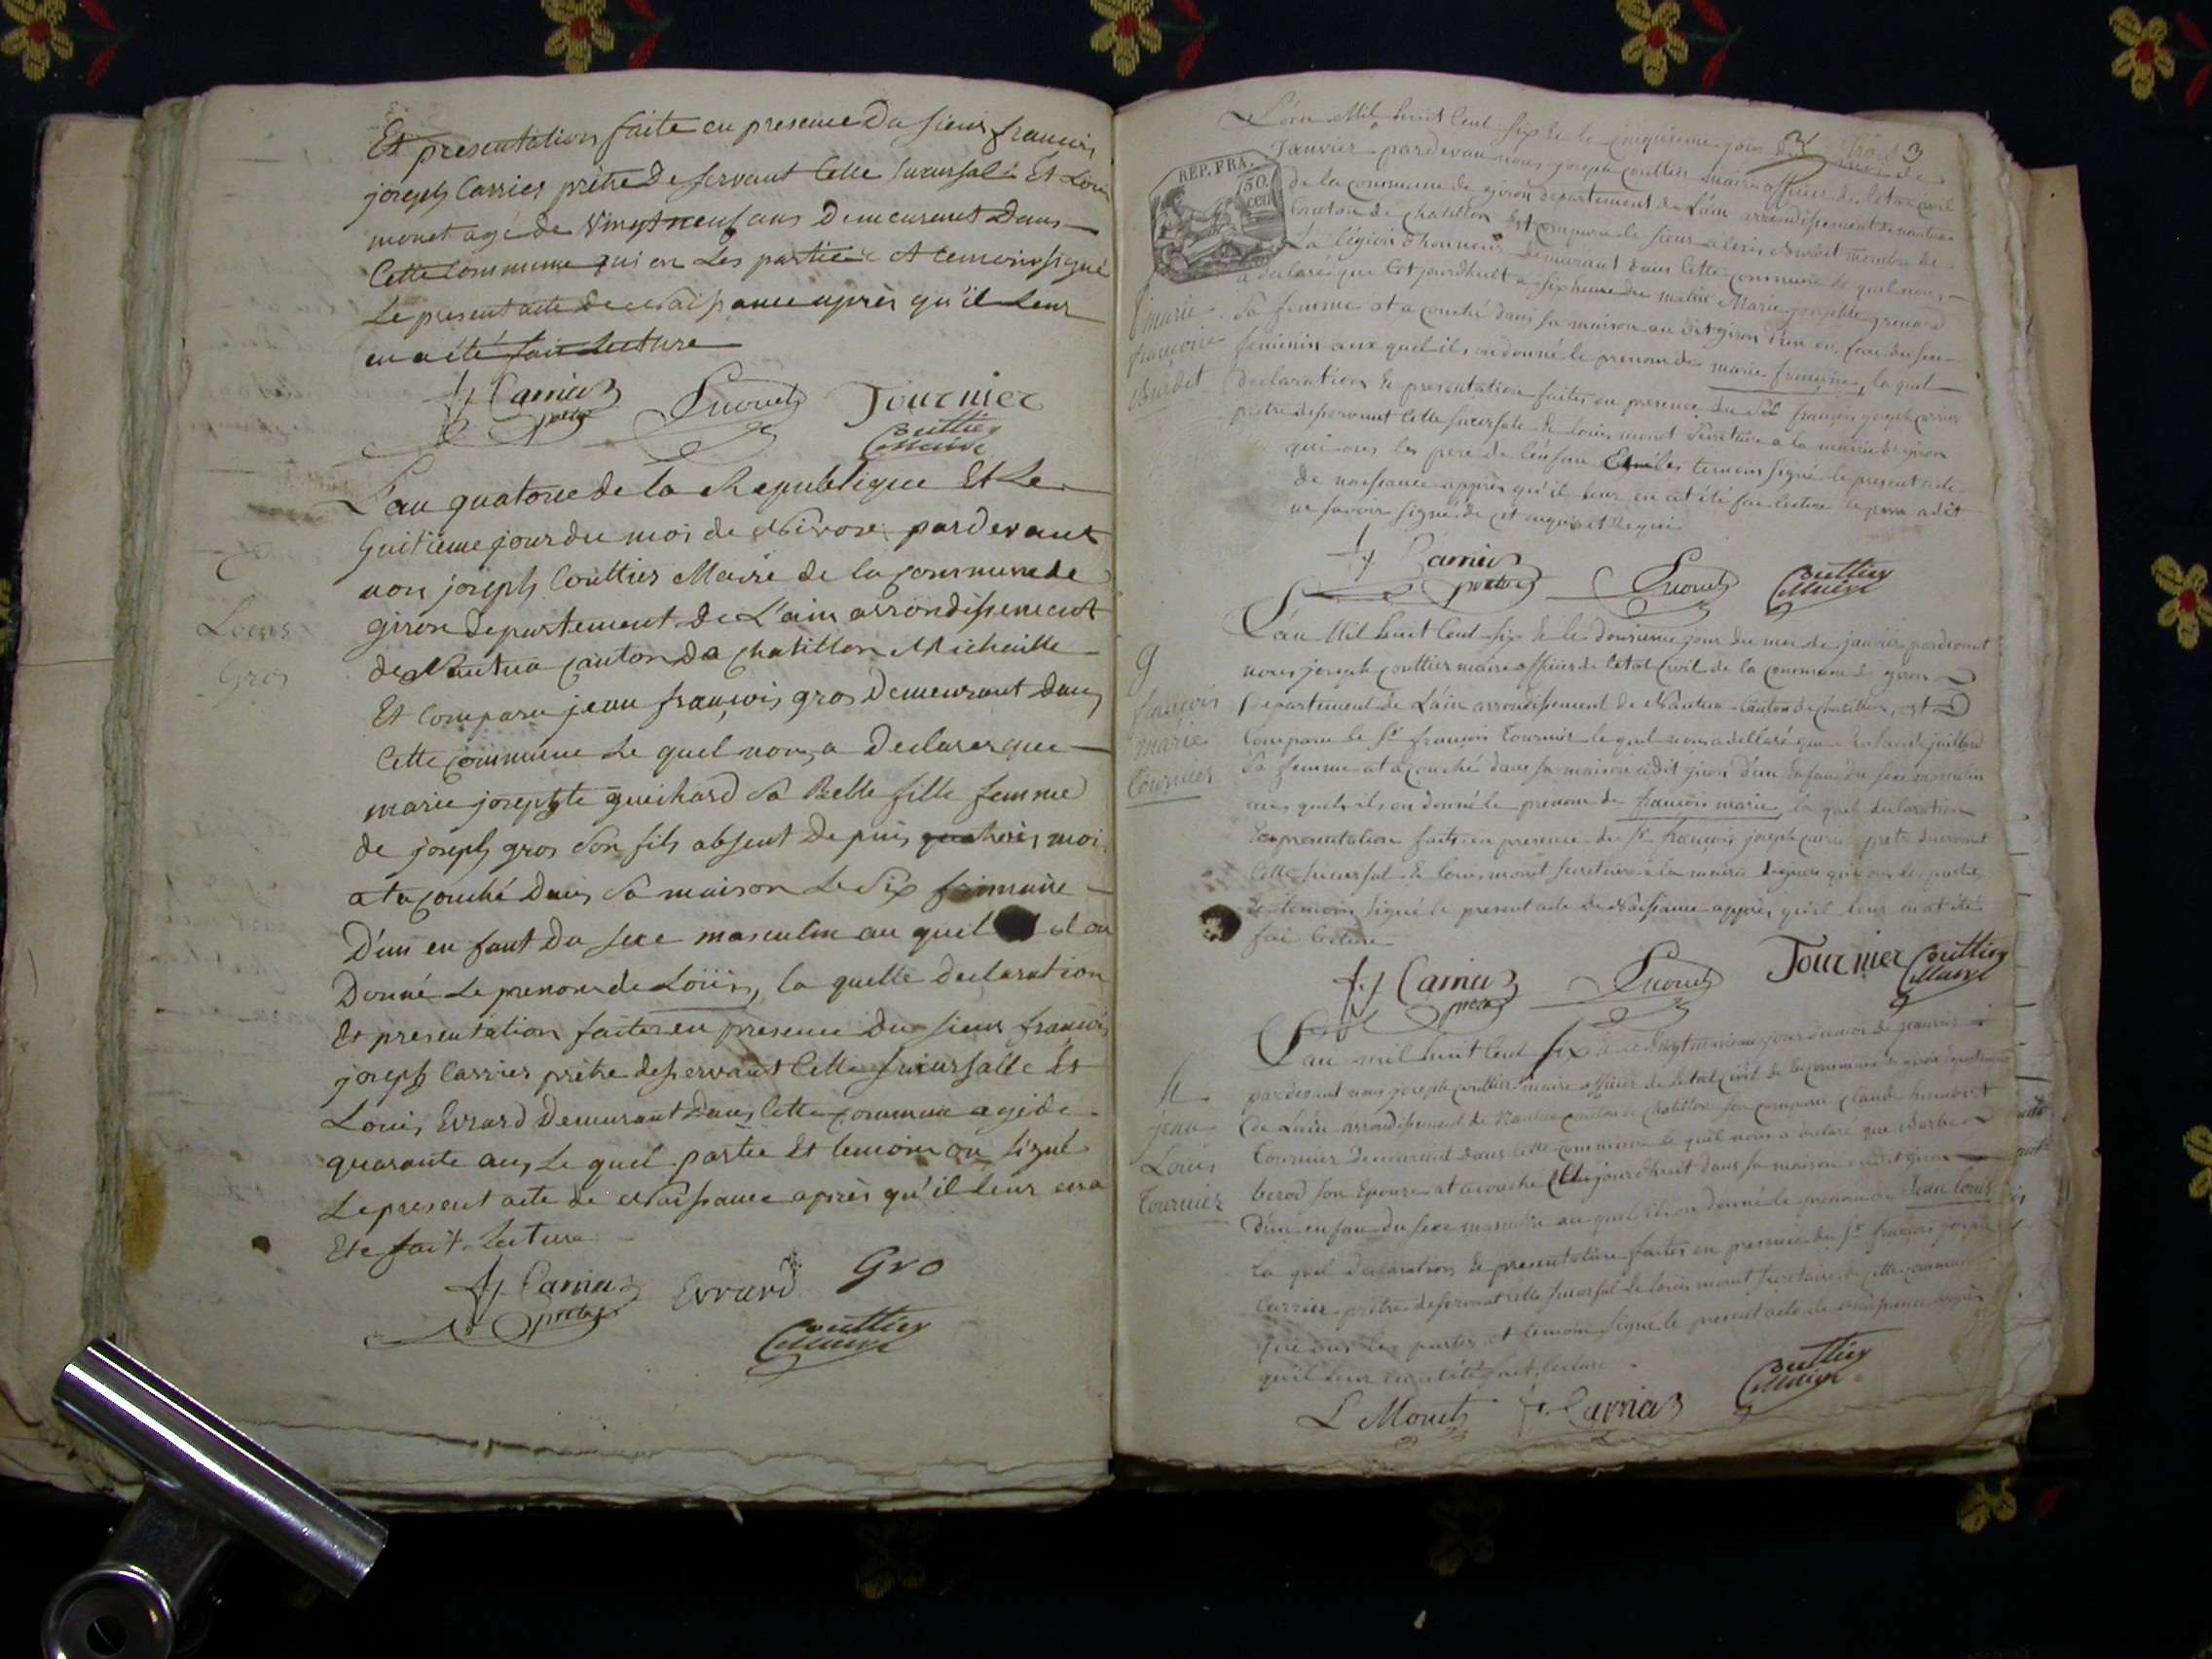 Et presentation faite en presence du sieur francois
joseph Carrier prêtre deservant Cette sucursale Et Louis
monet agé de vingt neuf ans demeurant dans
Cette Commune qui on les partie et temoins signé
Le present acte de Naissance après qu'il leur
en a été fait lecture
fj Carriaz
prêtre
Lmonet
Tournier
Couttier
Maire
Louis
Gros
L'an quatorze de la Republique Et Le
huitieme jour du mois de Nivose pardevant
nou joseph Couttier Maire de la commune de
giron departement de L'ain arrondissement
de Nantua canton de chatillon Michaille
Et Comparu jean francois gros Demeurant dans
Cette commune Le quel nous a declarer que
marie josephte guichard Sa Belle fille femme
de joseph gros Son fils absent depuis moi
at acouché dans Sa maison Le Six frimaire
D'un en fant du sexe masculin au quel il on
Donné Le prenom de Loüis, la quelle declaration
Et presentation faites en presence du sieur francois
joseph Carrier prêtre deservant Cette sucursalle Et
Louis Evrard Demeurant dans Cette commune agé de
quarante ans, Le quel partie Et temoin on signé
Le present acte de Naissance après qu'il leur en a
Ete fait Lecture
fj Carriaz
prêtre
Evrard
Gro
Couttier
Maire
REP. FRA.
50.
cen
3
L'an Mil huit Cent Six Et le cinquieme jour
Janvier pardevan nous joseph couttier maire officier de letat civil
de la commune de giron departement de L'ain arrondissement de nantua
Canton de chatillon Est comparu le sieur alexis Burdet membre de
La légion d'honneur demeurant dans Cette commune le quel nous
a declaré que Cet jourdhuit a six heure du matin Marie josephte grenard
Sa femme at acouché dans sa maison au dit giron d'un en fan du sexe
feminin aux quel ils on donné le prenom de marie françoise, la quel
Declaration Et presentation faites en presence du Sr françois joseph carrier
prêtre deservant Cette sucursale Et Louis monet Secretaire a la mairie de giron
qui ons les pere de l'enfan Et les temoins signé le present acte
de naissance apprès qu'il leur en at été fai lecture
ne savoir signé de cet enquis et requi
marie
françoise
Burdet
fj Carriaz
prêtre
Lmonet
Couttier
Maire
9
françois
marie
Tournier
L'an Mil huit Cent Six Et le douzieme jour du moi de janvier pardevant
nous joseph couttier maire officier de letat Civil de la commune de giron
Departement de Lain arrondissement de Nantua Canton de chatillon, est
Comparu le Sr françois Tournier le quel nous a dellaré que juillard
Sa femme at acouché dans sa maison audit giron d'un Enfan du sexe masculin
aux quel ils on donné le prenom de françois marie, la quel declaration
Et presentation faits en presence du Sr françois joseph carrier pretre deservant
Cette sucursal Et Louis monet secretaire a la mairie de giron qui ons les partie
Et temoin signé le present acte de Naissance apprès qu'il leur en at été
fai lecture
fj Carriaz
prêtre
Lmonet
Tournier
Couttier
Maire
jean
Louis
Tournier
L'an mil huit Cent Six jour du moi de janvier
pardevant nous joseph couttier maire officier de letat civil de la commune de giron departement
de Lain arrondissement de Nantua canton de Chatillon comparu claude humbert
Tournier Demeurant dans Cette Commune le quel nous a declaré que
berod son Epouse at acouché Cejourdhuit dans sa maison audit giron
D'un enfan du sexe masculin au quel ils on donné le prenom de Jean louis
La quel declaration Et presentation faites en presence du Sr françois joseph
Carrier prêtre deservant cette sucursal Et Louis monet secretaire de cette commune
qui ons les parties et temoin signé le present acte de Naissance apprès
qu'il leur en at été fait, lecture
L Monet
fj. Carriaz
Couttier
Maire